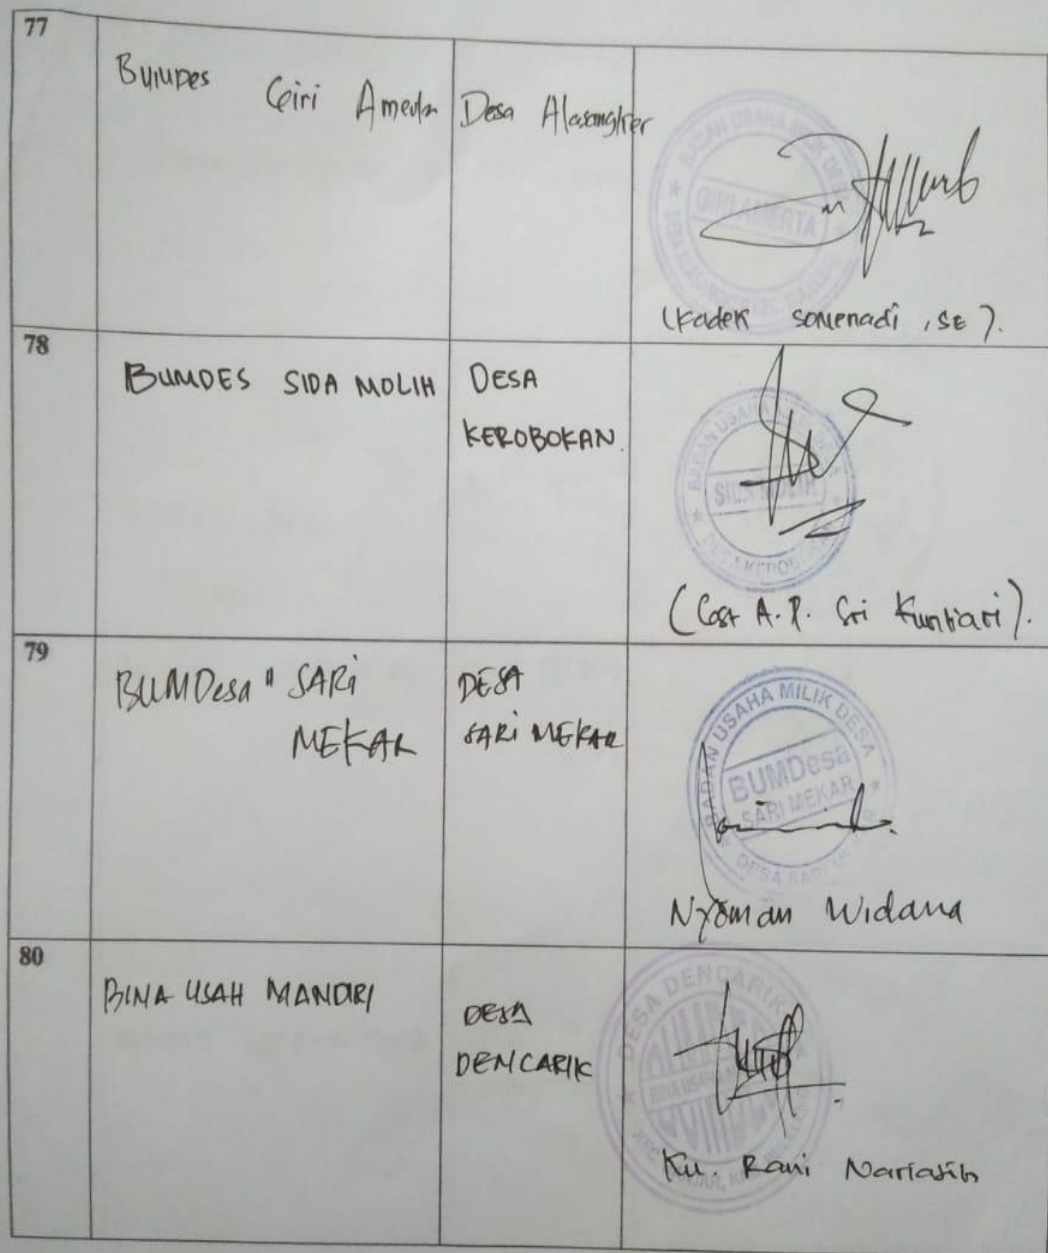 77
Bumdes Giri Amerta
Desa Alasangker
BADAN USAHA MILIK DESA
GIRI AMERTA
(Kadek somenadi, SE).
78
BUMDES SIDA MOLIH
DESA
KEROBOKAN.
BADAN USAHA
MOLIH
(Cost A.P. Sri Kuntiari).
79
BUMDesa " SARi
MEKAR
DESA
SARi MEKAR
BADAN USAHA MILIK DESA
BUMDesa
SARI MEKAR
DESA SARI
Nyoman Widana
80
BINA USAH MANDIRI
DESA
DENCARIK
DESA DENCARIK
BINA USAHA
Rani Nariasih